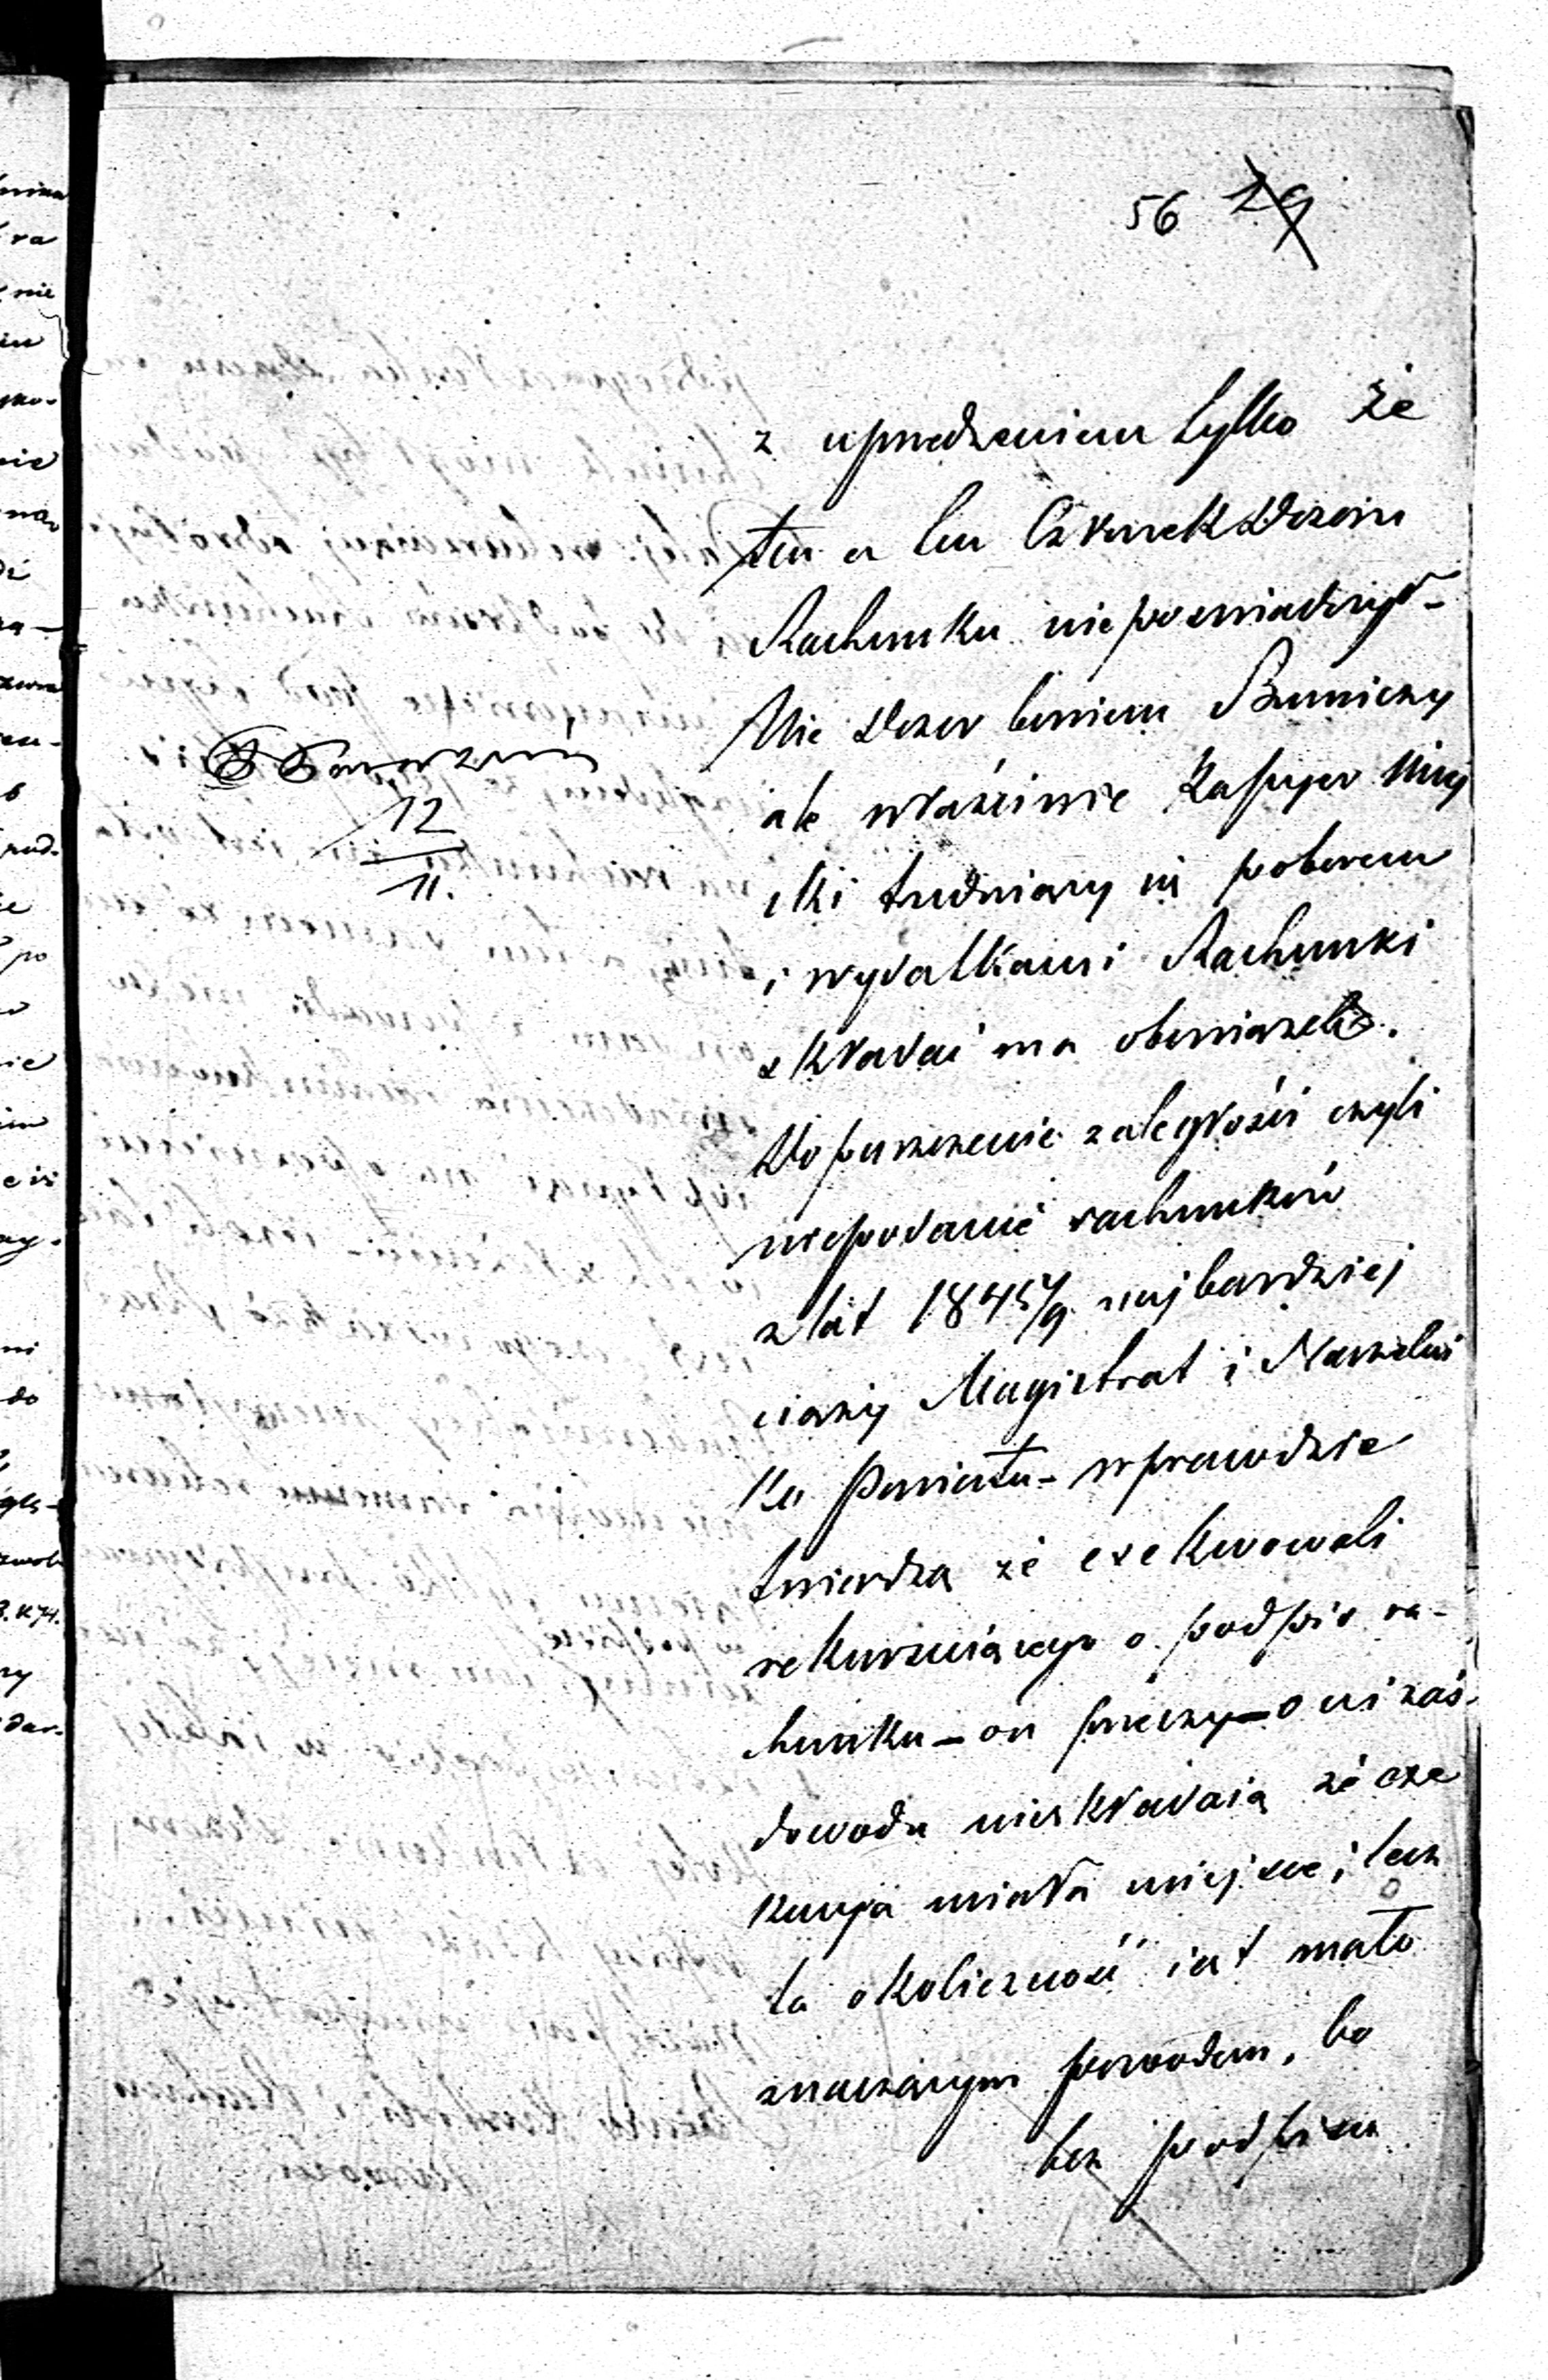 56 29
z uprzedzeniem tylko że
ten a ten Członek Dozoru
Rachunku niepoświadczył –
Nie Dozor bowiem Bużniczy
ale właściwie Kassyer Miey
ski trudniący się poborem
i wydatkami Rachunki
składać ma obowiązek.
Dopuszczenie zaległości czyli
niepodanie rachunków
z lat 1845/9 najbardziej
ciąży Magistrat i Naczelni
ka Powiatu – wprawdzie
twierdzą że exekwowali
rekursuiącego o podpis ra-
chunku – on przeczy – oni zaś
dowodu nieskładaią że exe
kucya miała miejsce; lecz
ta okoliczność iest mało
znaczącym powodem, bo
bez podpisu
12
11.